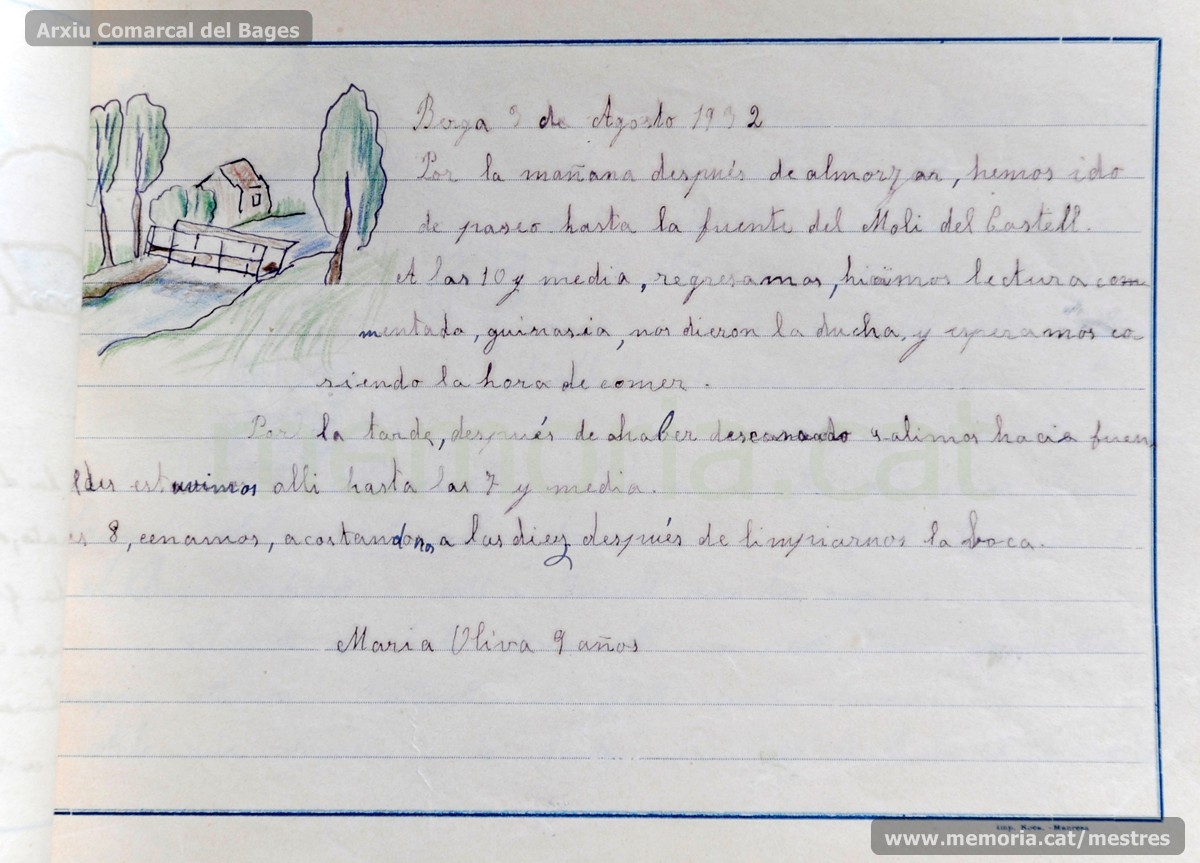 Arxiu Comarcal del Bages
Berga 3 de Agosto 1932
Por la mañana después de almorzar, hemos ido
de paseo hasta la fuente del Moli del Castell.
A las 10 y media, regresamos, hicimos lectura com
mentada, guinasia, nos dieron la ducha, y esperamos co
siendo la hora de comer.
Por la tarde, después de ahaber descansado salimos hacia fuen
estuvimos alli hasta las 7 y media.
8, cenamos, acostandonos a las diez después de limpiarnos la boca.
memoria.cat
Maria Oliva 9 años
Imp. Roca. - Manresa
www.memoria.cat/mestres